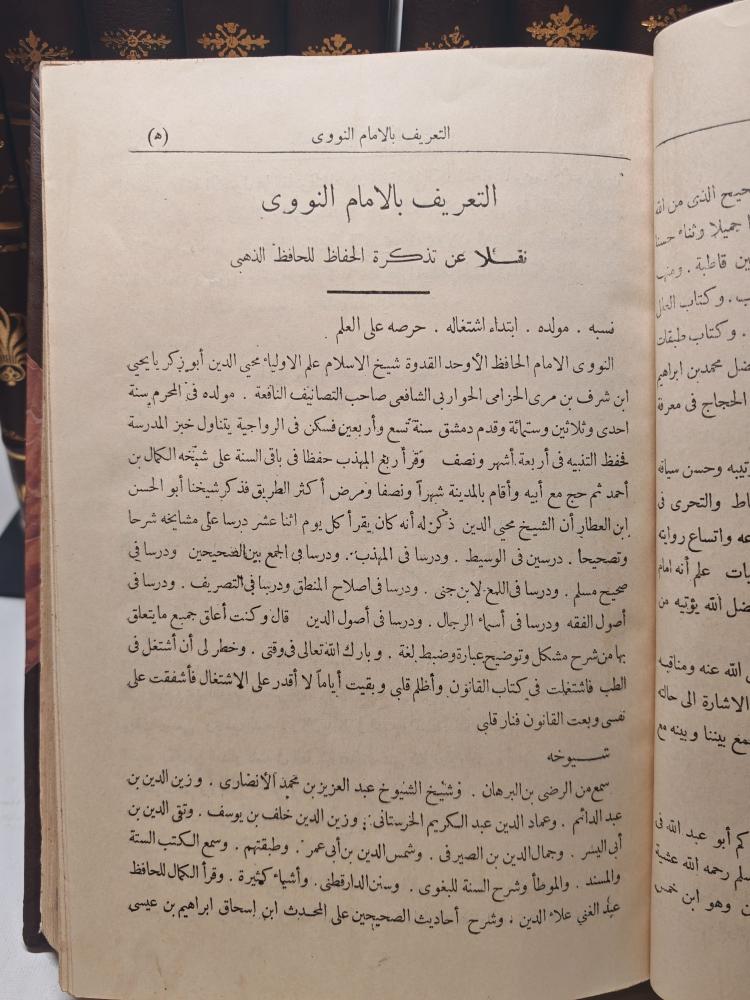 التعريف بالامام النووى (ه)
التعريف بالامام النووى
نقلا عن تذكرة الحفاظ للحافظ الذهبى
نسبه . مولده . ابتداء اشتغاله . حرصه على العلم
النووى الامام الحافظ الأوحد القدوة شيخ الاسلام علم الاولياء محيي الدين أبو زكريا يحيى
ابن شرف بن مرى الحزامى الحواربى الشافعى صاحب التصانيف النافعة . مولده فى المحرم سنة
احدى وثلاثين وستمائة وقدم دمشق سنة تسع وأربعين فسكن فى الرواجية يتناول خبز المدرسة
فحفظ التنبيه فى أربعة أشهر ونصف وقرأ ربع المهذب حفظا فى باقى السنة على شيخه الكمال بن
أحمد ثم حج مع أبيه وأقام بالمدينة شهرا ونصفا ومرض أكثر الطريق فذكر شيخنا أبو الحسن
ابن العطار أن الشيخ محيي الدين ذكر له أنه كان يقرأ كل يوم اثنا عشر درسا على مشايخه شرحا
وتصحيحا . درسين فى الوسيط . ودرسا فى المهذب . ودرسا فى الجمع بين الصحيحين ودرسا فى
صحيح مسلم . ودرسا فى اللمع لابن جنى . ودرسا فى اصلاح المنطق ودرسا فى التصريف . ودرسا فى
أصول الفقه ودرسا فى أسماء الرجال . ودرسا فى أصول الدين قال وكنت أعلق جميع ما يتعلق
بها من شرح مشكل وتوضيح عبارة وضبط لغة . وبارك الله تعالى فى وقتى . وخطر لى أن أشتغل فى
الطب فاشتغلت فى كتاب القانون وأظلم قلبى وبقيت أياماً لا أقدر على الاشتغال فأشفقت على
نفسى وبعت القانون فنار قلبى
شيوخه
سمع من الرضى بن البرهان . وشيخ الشيوخ عبد العزيز بن محمد الأنصارى . وزين الدين بن
عبد الدائم . وعماد الدين عبد الكريم الخرستانى . وزين الدين خلف بن يوسف . وتقى الدين بن
أبى اليسر . وجمال الدين بن الصيرفى . وشمس الدين بن أبى عمر . وطبقتهم . وسمع الكتب الستة
والمسند . والموطأ وشرح السنة للبغوى . وسنن الدارقطنى . وأشياء كثيرة . وقرأ الكمال للحافظ
عبد الغني علاء الدين . وشرح أحاديث الصحيحين على المحدث ابن إسحاق ابراهيم بن عيسى
حيح الذى من الله
جميلا وثناء حسنا
ين قاطبة . ومنها
ب . وكتاب العلل
. وكتاب طبقات
ضل محمد بن ابراهيم
الحجاج فى معرفة
رتيبه وحسن سياقه
اط والتحرى فى
عه واتساع روايته
يات علم أنه امام
ضل الله يؤتيه من
الله عنه ومناقبه
الاشارة الى حالته
مع بيننا وبينه مع
كم أبو عبد الله فى
سلم رحمه الله عشية
وهو ابن خمس